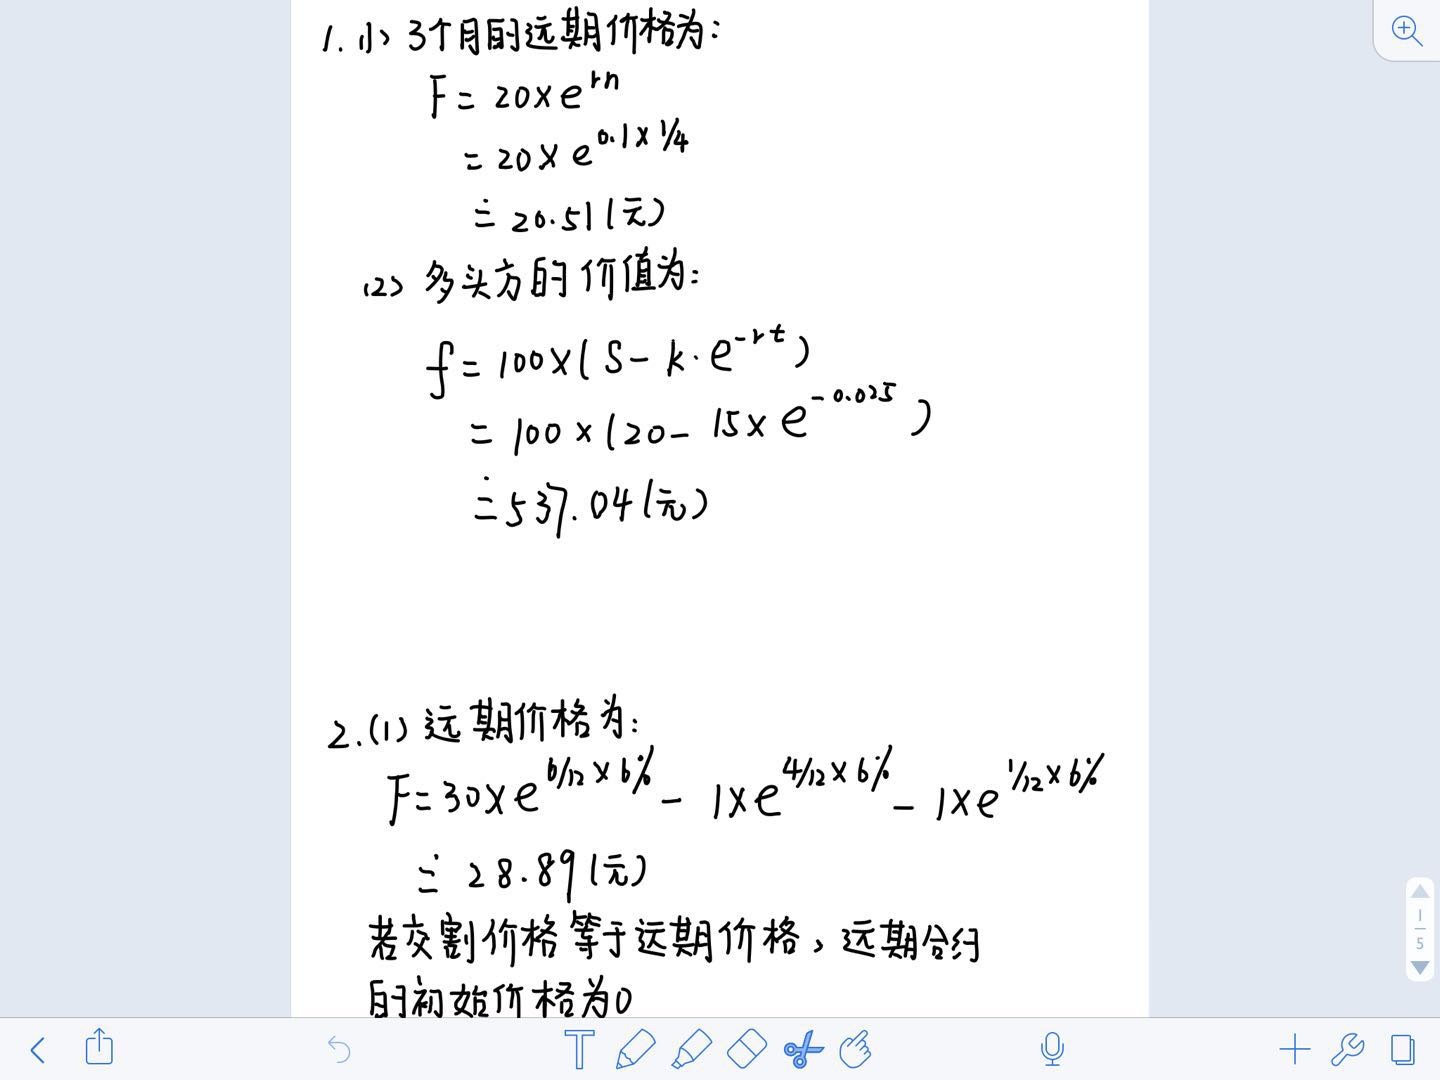 1. (1) 3个月的远期价格为:
F = 20×e^rn
= 20×e^0.1×1/4
≐ 20.51(元)
(2) 多头方的价值为:
f = 100×(S-k·e^-rt)
= 100×(20-15×e^-0.025)
≐ 537.04(元)
2.(1) 远期价格为:
F = 30×e^6/12×6% - 1×e^4/12×6% - 1×e^1/12×6%
≐ 28.89(元)
若交割价格等于远期价格,远期合约
的初始价格为0
1
5
T